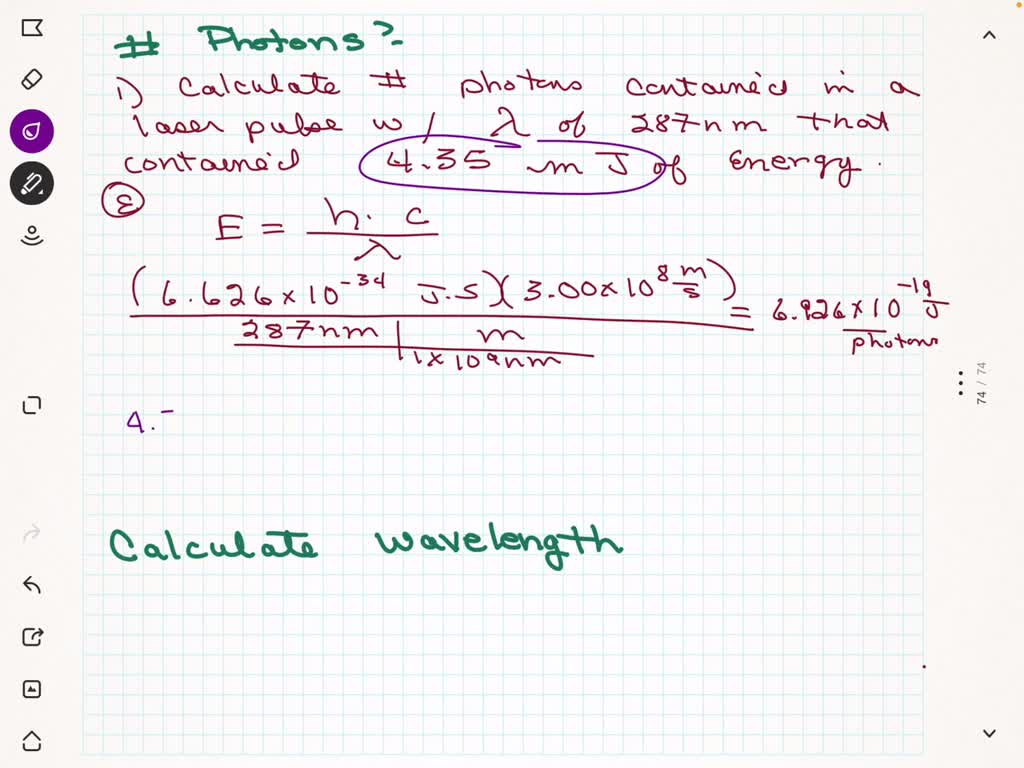 # Photons?
1) Calculate # photons contained in a
laser pulse w/ λ of 287nm that
contained 4.35 mJ of Energy.
E
E = h · c / λ
(6.626 × 10⁻³⁴ J·s)(3.00 × 10⁸ m/s) = 6.926 × 10⁻¹⁹ J
287nm | m photons
1 × 10⁹ nm
4.
Calculate wavelength
74 / 74